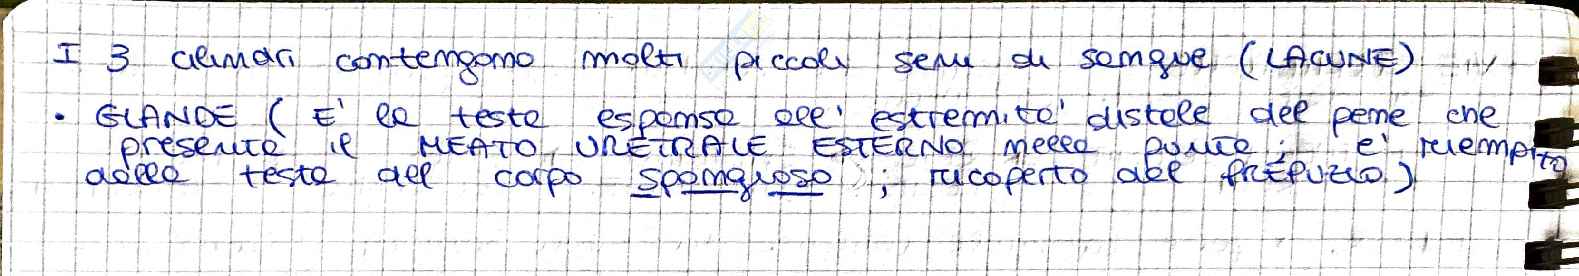 I 3 cilindri contengono molti piccoli seni di sangue (LACUNE)
• GLANDE ( E' la testa espansa all' estremità distale del pene che
presenta il MEATO URETRALE ESTERNO nella punta; e' riempito
dalla testa del corpo spongioso; ricoperto dal PREPUZIO)